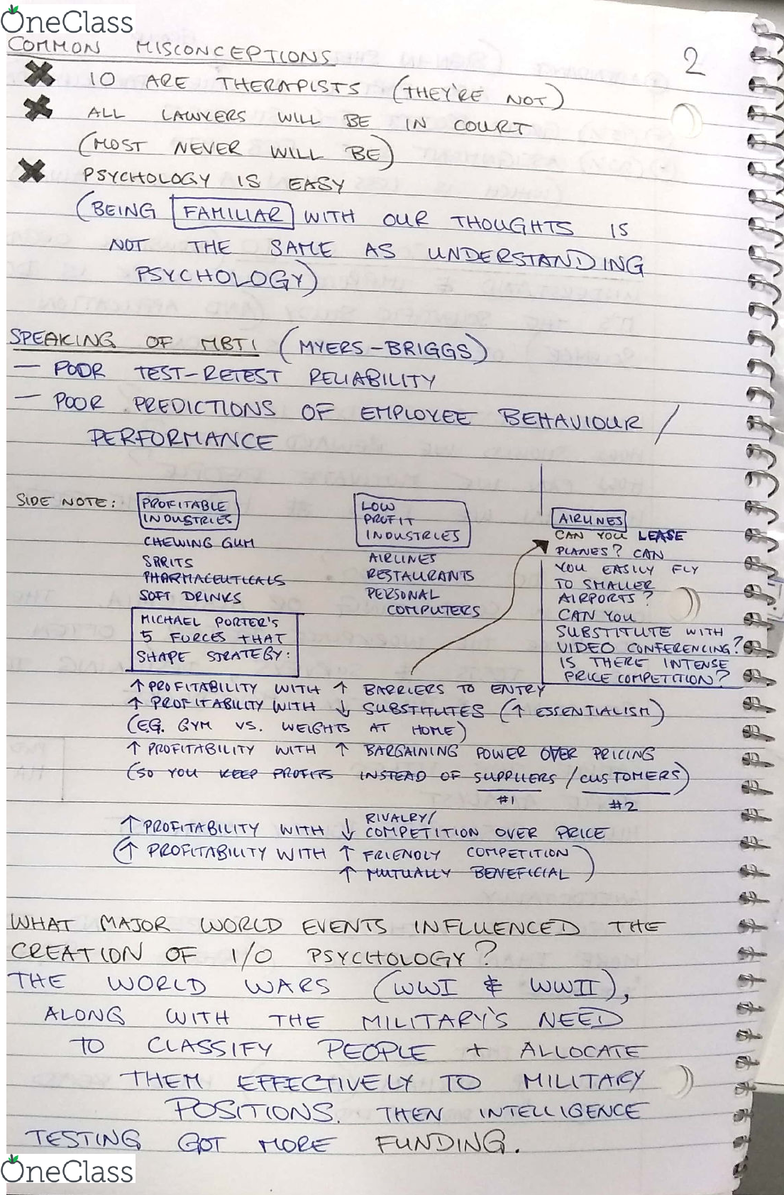 OneClass
COMMON MISCONCEPTIONS
2
IO ARE THERAPISTS (THEY'RE NOT)
ALL LAWYERS WILL BE IN COURT
(MOST NEVER WILL BE)
PSYCHOLOGY IS EASY
(BEING FAMILIAR WITH OUR THOUGHTS IS
NOT THE SAME AS UNDERSTANDING
PSYCHOLOGY)
SPEAKING OF MBTI (MYERS-BRIGGS)
— POOR TEST-RETEST RELIABILITY
— POOR PREDICTIONS OF EMPLOYEE BEHAVIOUR /
PERFORMANCE
SIDE NOTE:
PROFITABLE
INDUSTRIES
CHEWING GUM
SPIRITS
PHARMACEUTICALS
SOFT DRINKS
LOW
PROFIT
INDUSTRIES
AIRLINES
RESTAURANTS
PERSONAL
COMPUTERS
AIRLINES
CAN YOU LEASE
PLANES? CAN
YOU EASILY FLY
TO SMALLER
AIRPORTS?
CAN YOU
SUBSTITUTE WITH
VIDEO CONFERENCING?
IS THERE INTENSE
PRICE COMPETITION?
MICHAEL PORTER'S
5 FORCES THAT
SHAPE STRATEGY:
↑ PROFITABILITY WITH ↑ BARRIERS TO ENTRY
↑ PROFITABILITY WITH ↓ SUBSTITUTES (↑ ESSENTIALISM)
(EG. GYM VS. WEIGHTS AT HOME)
↑ PROFITABILITY WITH ↑ BARGAINING POWER OVER PRICING
(SO YOU KEEP PROFITS INSTEAD OF SUPPLIERS / CUSTOMERS)
#1 #2
↑ PROFITABILITY WITH ↓ RIVALRY/
COMPETITION OVER PRICE
(↑ PROFITABILITY WITH ↑ FRIENDLY COMPETITION
↑ MUTUALLY BENEFICIAL)
WHAT MAJOR WORLD EVENTS INFLUENCED THE
CREATION OF I/O PSYCHOLOGY?
THE WORLD WARS (WWI & WWII),
ALONG WITH THE MILITARY'S NEED
TO CLASSIFY PEOPLE + ALLOCATE
THEM EFFECTIVELY TO MILITARY
POSITIONS. THEN INTELLIGENCE
TESTING GOT MORE FUNDING.
OneClass